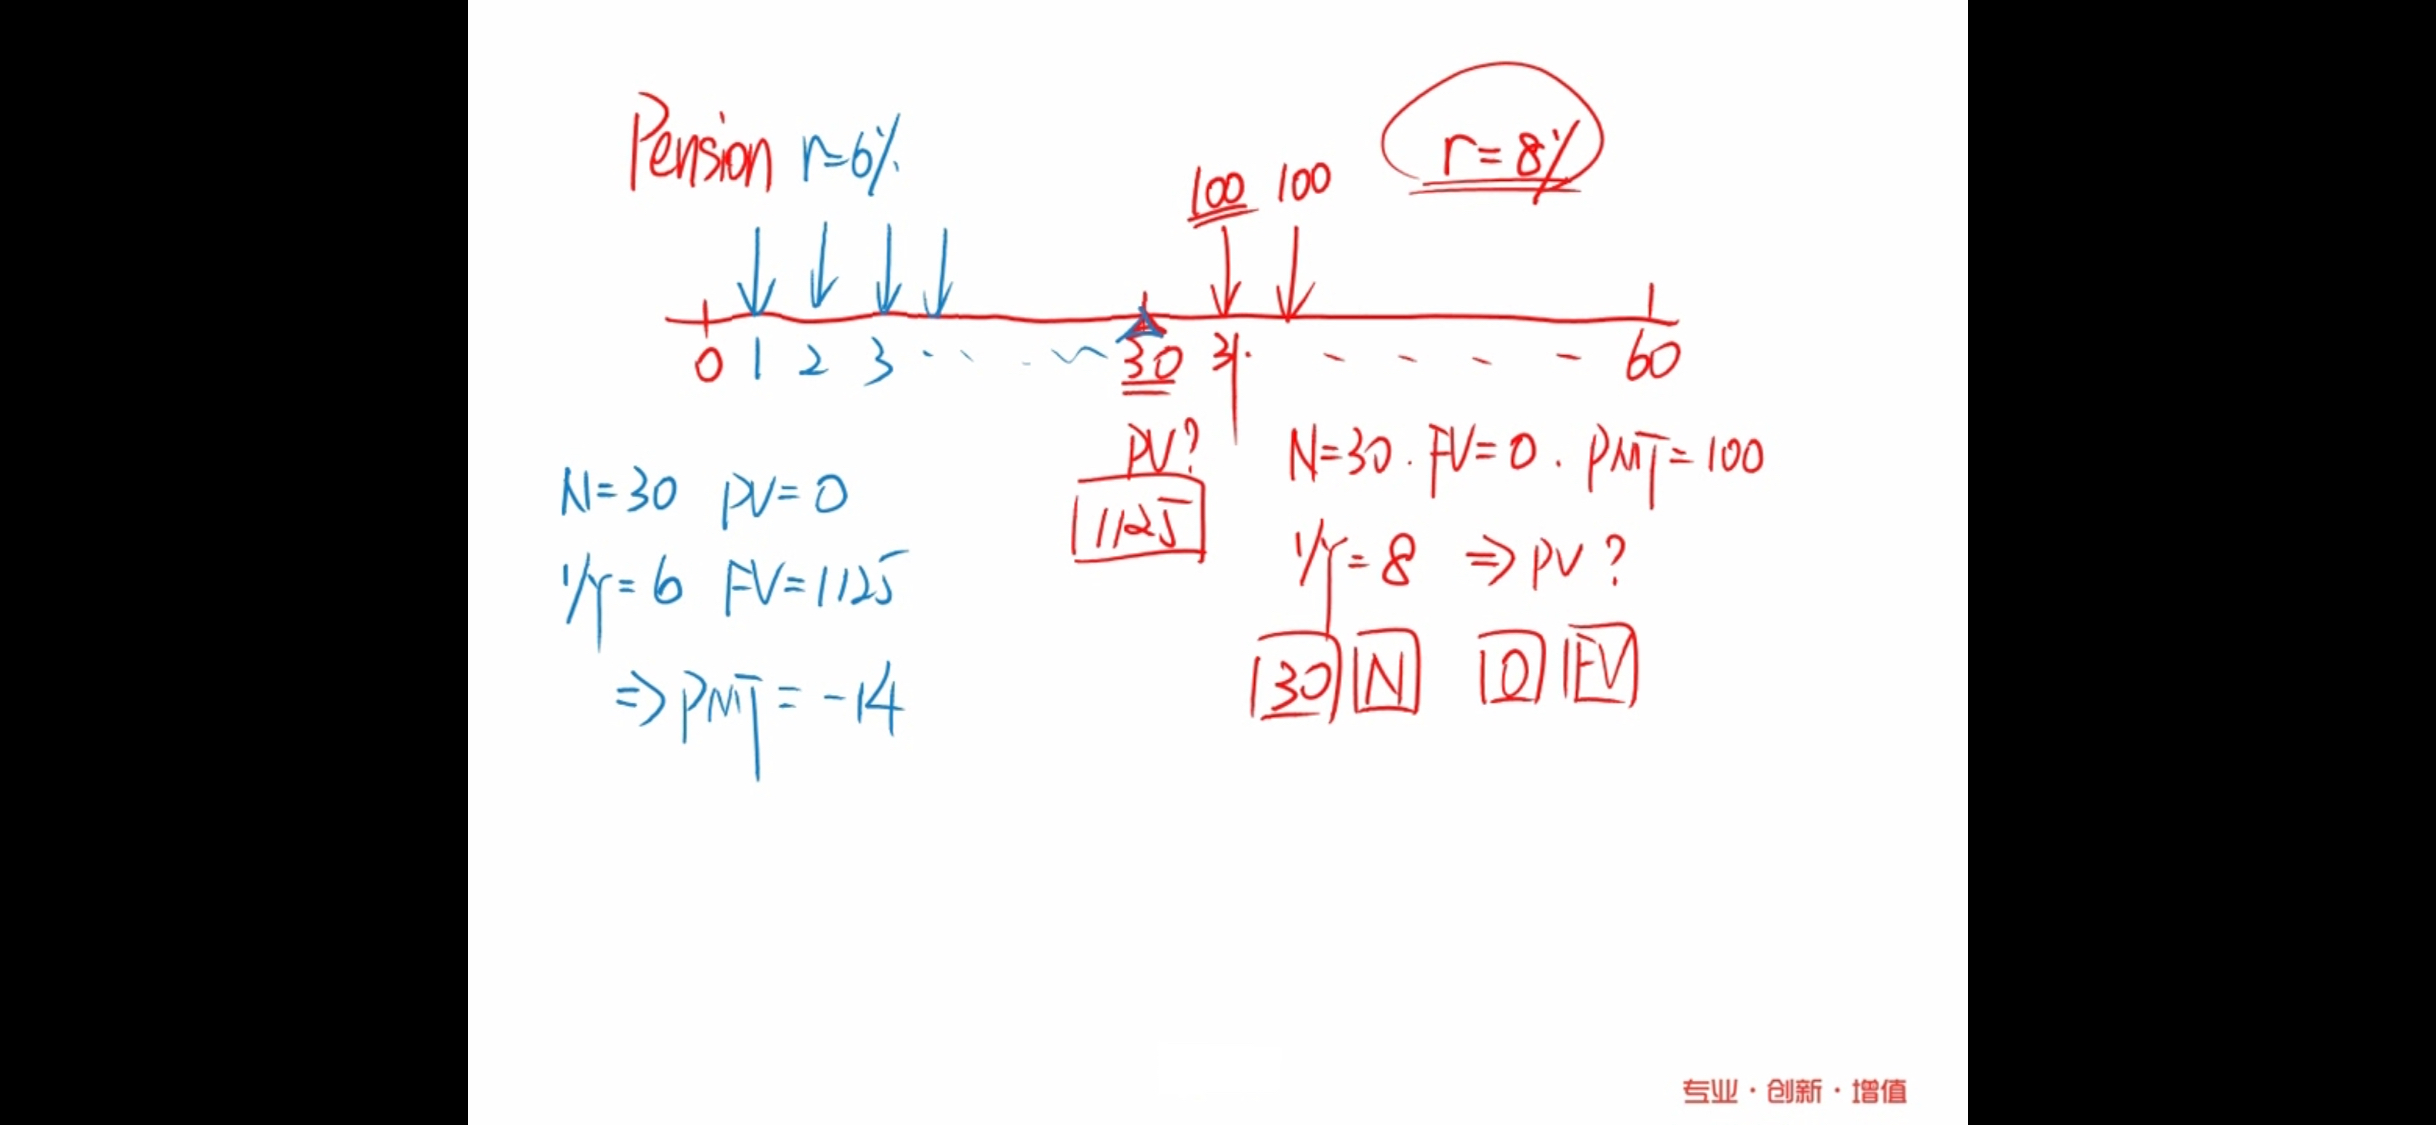 Pension r=6%
r=8%
100 100
0 1 2 3 30 31 60
PV?
1125
N=30 . FV=0 . PMT=100
I/Y=8 ⇒ PV ?
30 N 0 FV
N=30 PV=0
I/Y=6 FV=1125
⇒ PMT = -14
专业·创新·增值